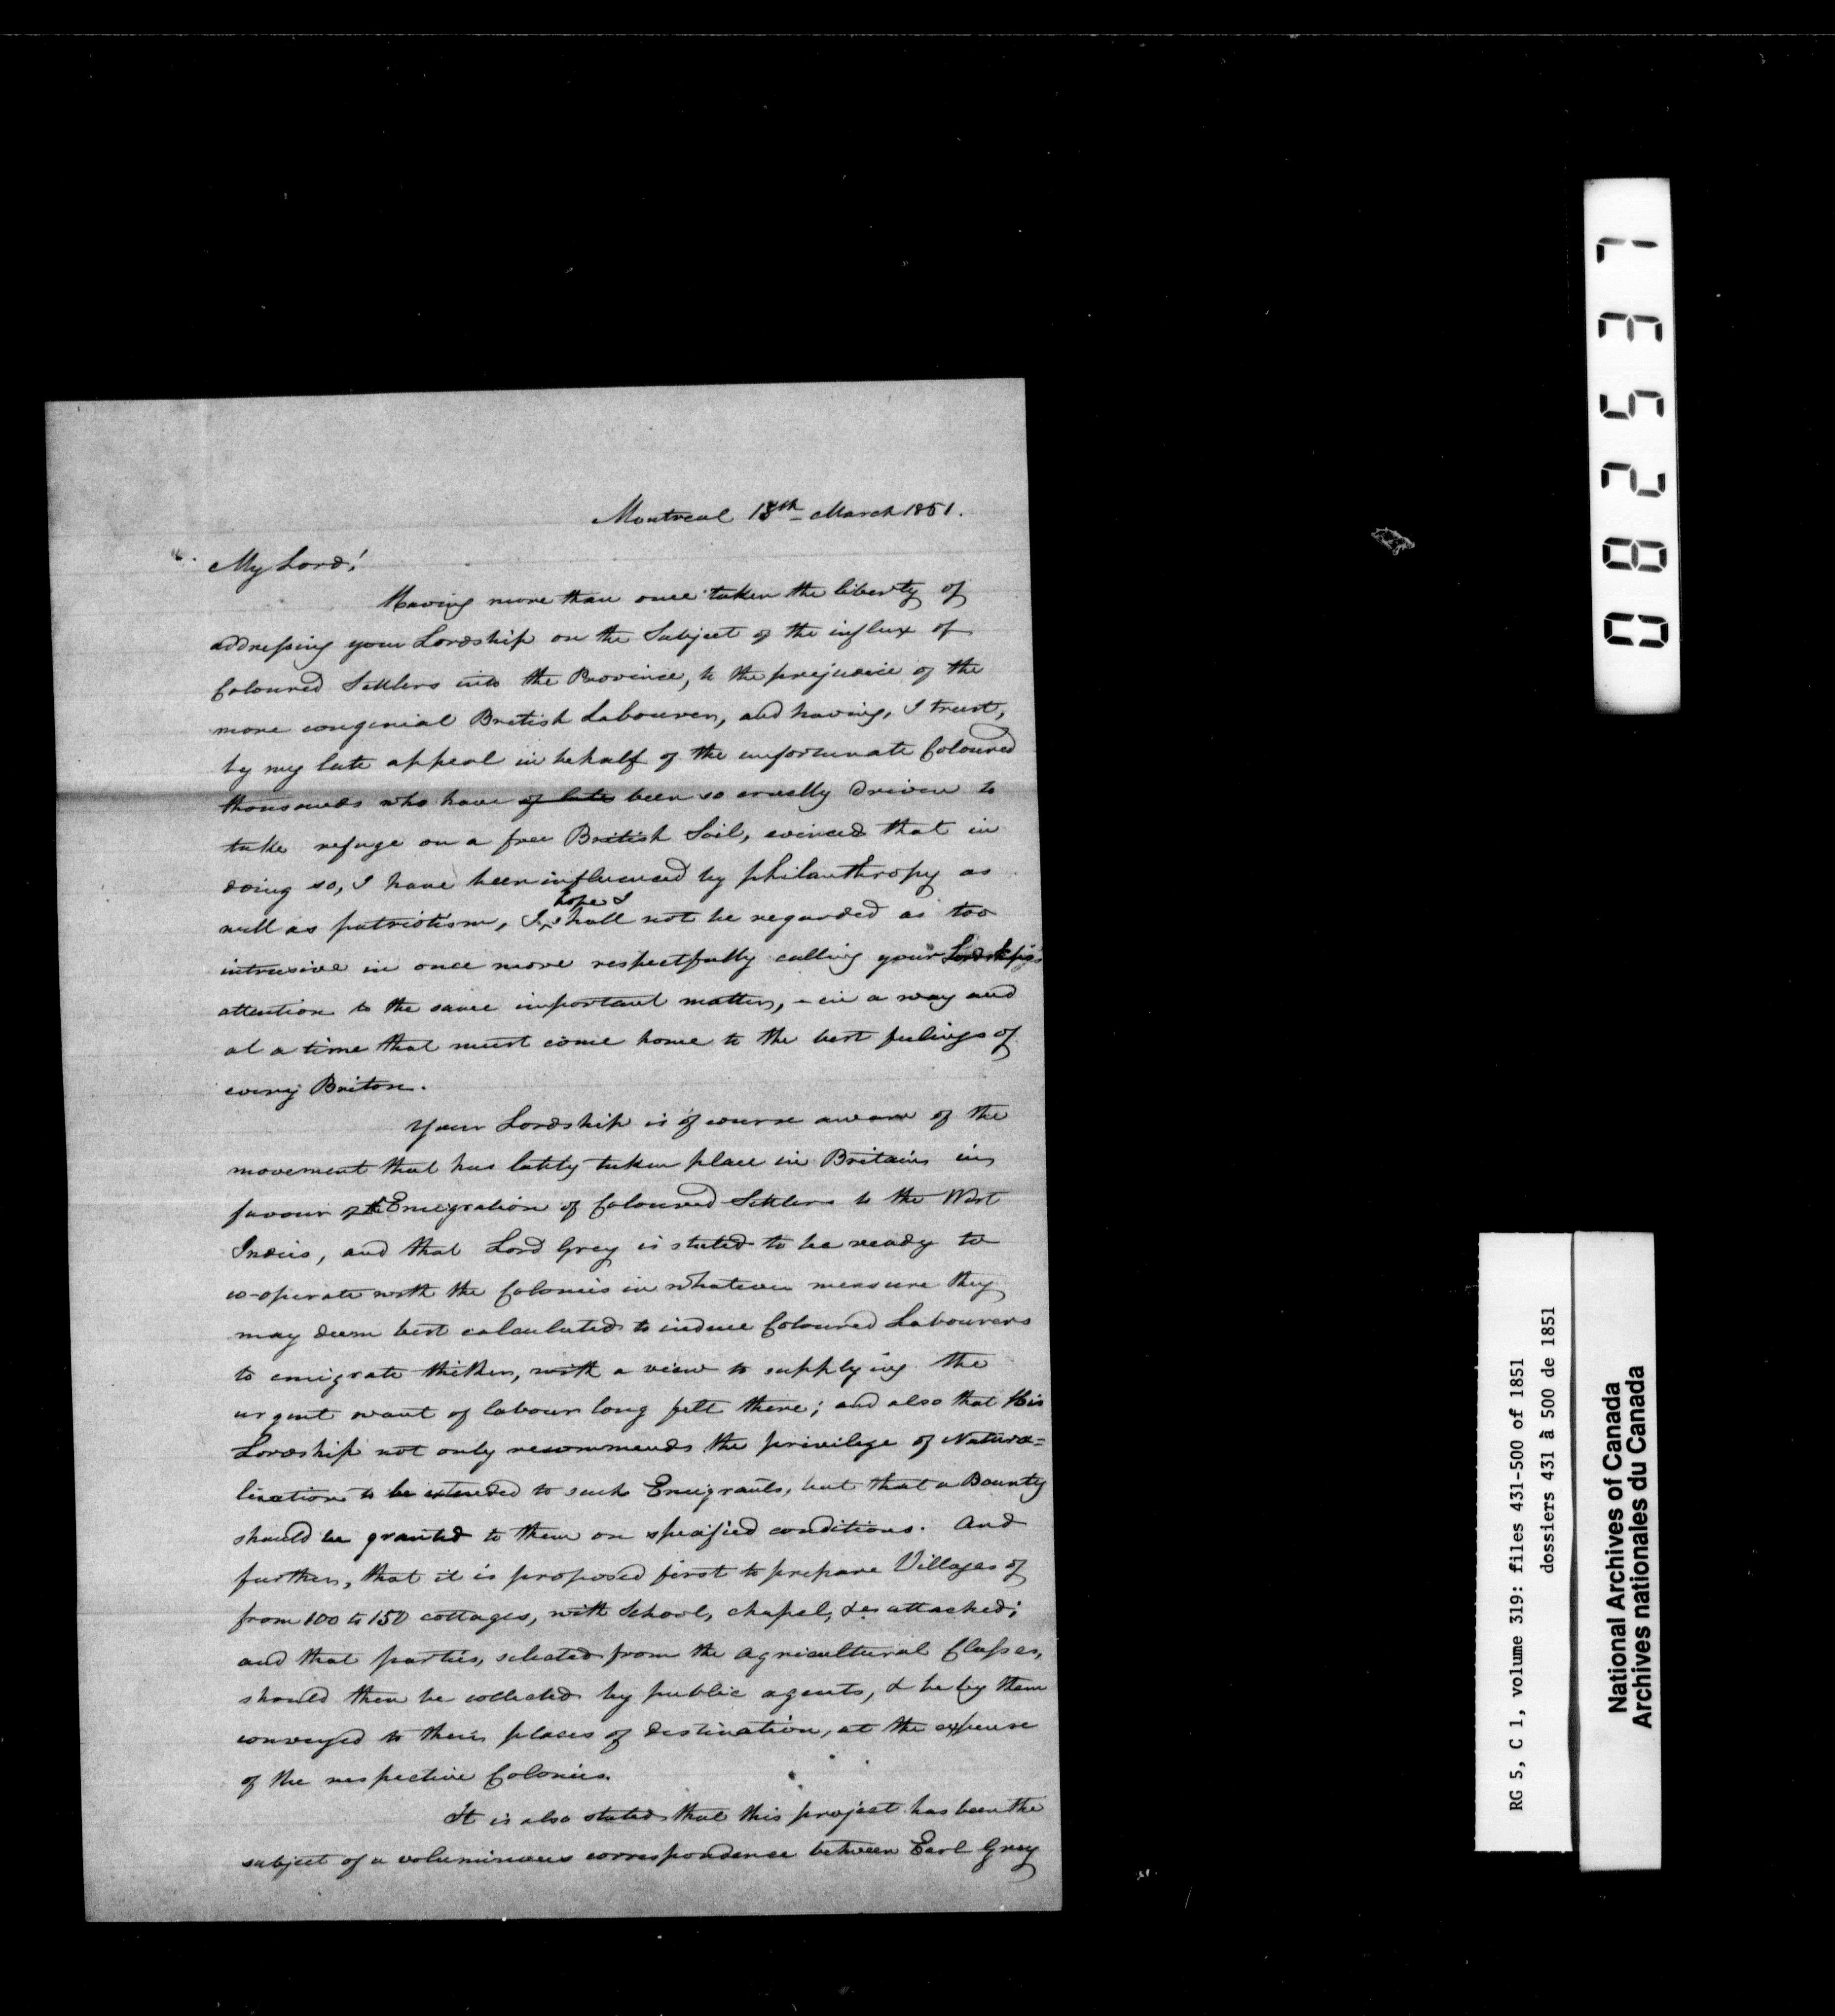 Montreal 13th March 1851.
My Lord!
Having more than once taken the liberty of
addressing your Lordship on the Subject of the influx of
Coloured Settlers into the Province, to the prejudice of the
more congenial British Labourer, and having, I trust,
by my late appeal in behalf of the unfortunate Coloured
thousands who have of late been so cruelly driven to
take refuge on a free British Soil, evinced that in
doing so, I have been influenced by philanthropy as
well as patriotism, I hope I shall not be regarded as too
intrusive in once more respectfully calling your Lordship's
attention to the same important matter, - in a way and
at a time that must come home to the best feelings of
every Briton.
Your Lordship is of course aware of the
movement that has lately taken place in Britain in
favour of the Emigration of Coloured Settlers to the West
Indies, and that Lord Grey is stated to be ready to
co-operate with the Colonies in whatever measure they
may deem best calculated to induce Coloured Labourers
to emigrate thither, with a view to supplying the
urgent want of labour long felt there; and also that His
Lordship not only recommends the privilege of Natura=
lization to be extended to such Emigrants, but that a Bounty
should be granted to them on specified conditions. And
further, that it is proposed first to prepare Villages of
from 100 to 150 cottages, with School, chapel, &c. attached;
and that parties, selected from the agricultural Classes,
should then be collected by public agents, & be by them
conveyed to their places of destination, at the expense
of the respective Colonies.
It is also stated that this project has been the
subject of a voluminous correspondence between Earl Grey
082537
RG 5, C 1, volume 319: files 431-500 of 1851
dossiers 431 à 500 de 1851
National Archives of Canada
Archives nationales du Canada